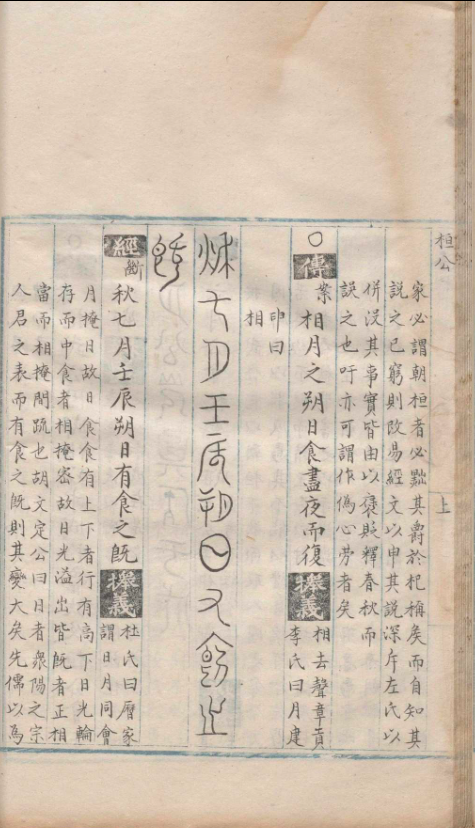 桓公
上
家必謂朝桓者必黜其爵於杞稱矣而自知其
說之已窮則改易經文以申其說深斥左氏以
併沒其事實皆由以褒貶釋春秋而
誤之也吁亦可謂作偽心勞者矣
○傳業相月之朔日食盡夜而復攈義相去聲章貢
李氏曰月建
申曰
相
秋七月壬辰朔日又食之
既
經斷秋七月壬辰朔日有食之既攈義杜氏曰曆家
謂日月同會
月掩日故日食食有上下者行有高下日光輪
存而中食者相掩密故日光溢出皆既者正相
當而相掩間疏也胡文定公曰日者衆陽之宗
人君之表而有食之既則其變大矣先儒以為